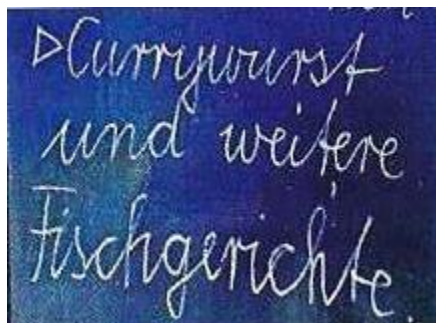 ▷Currywurst
und weitere
Fischgerichte.